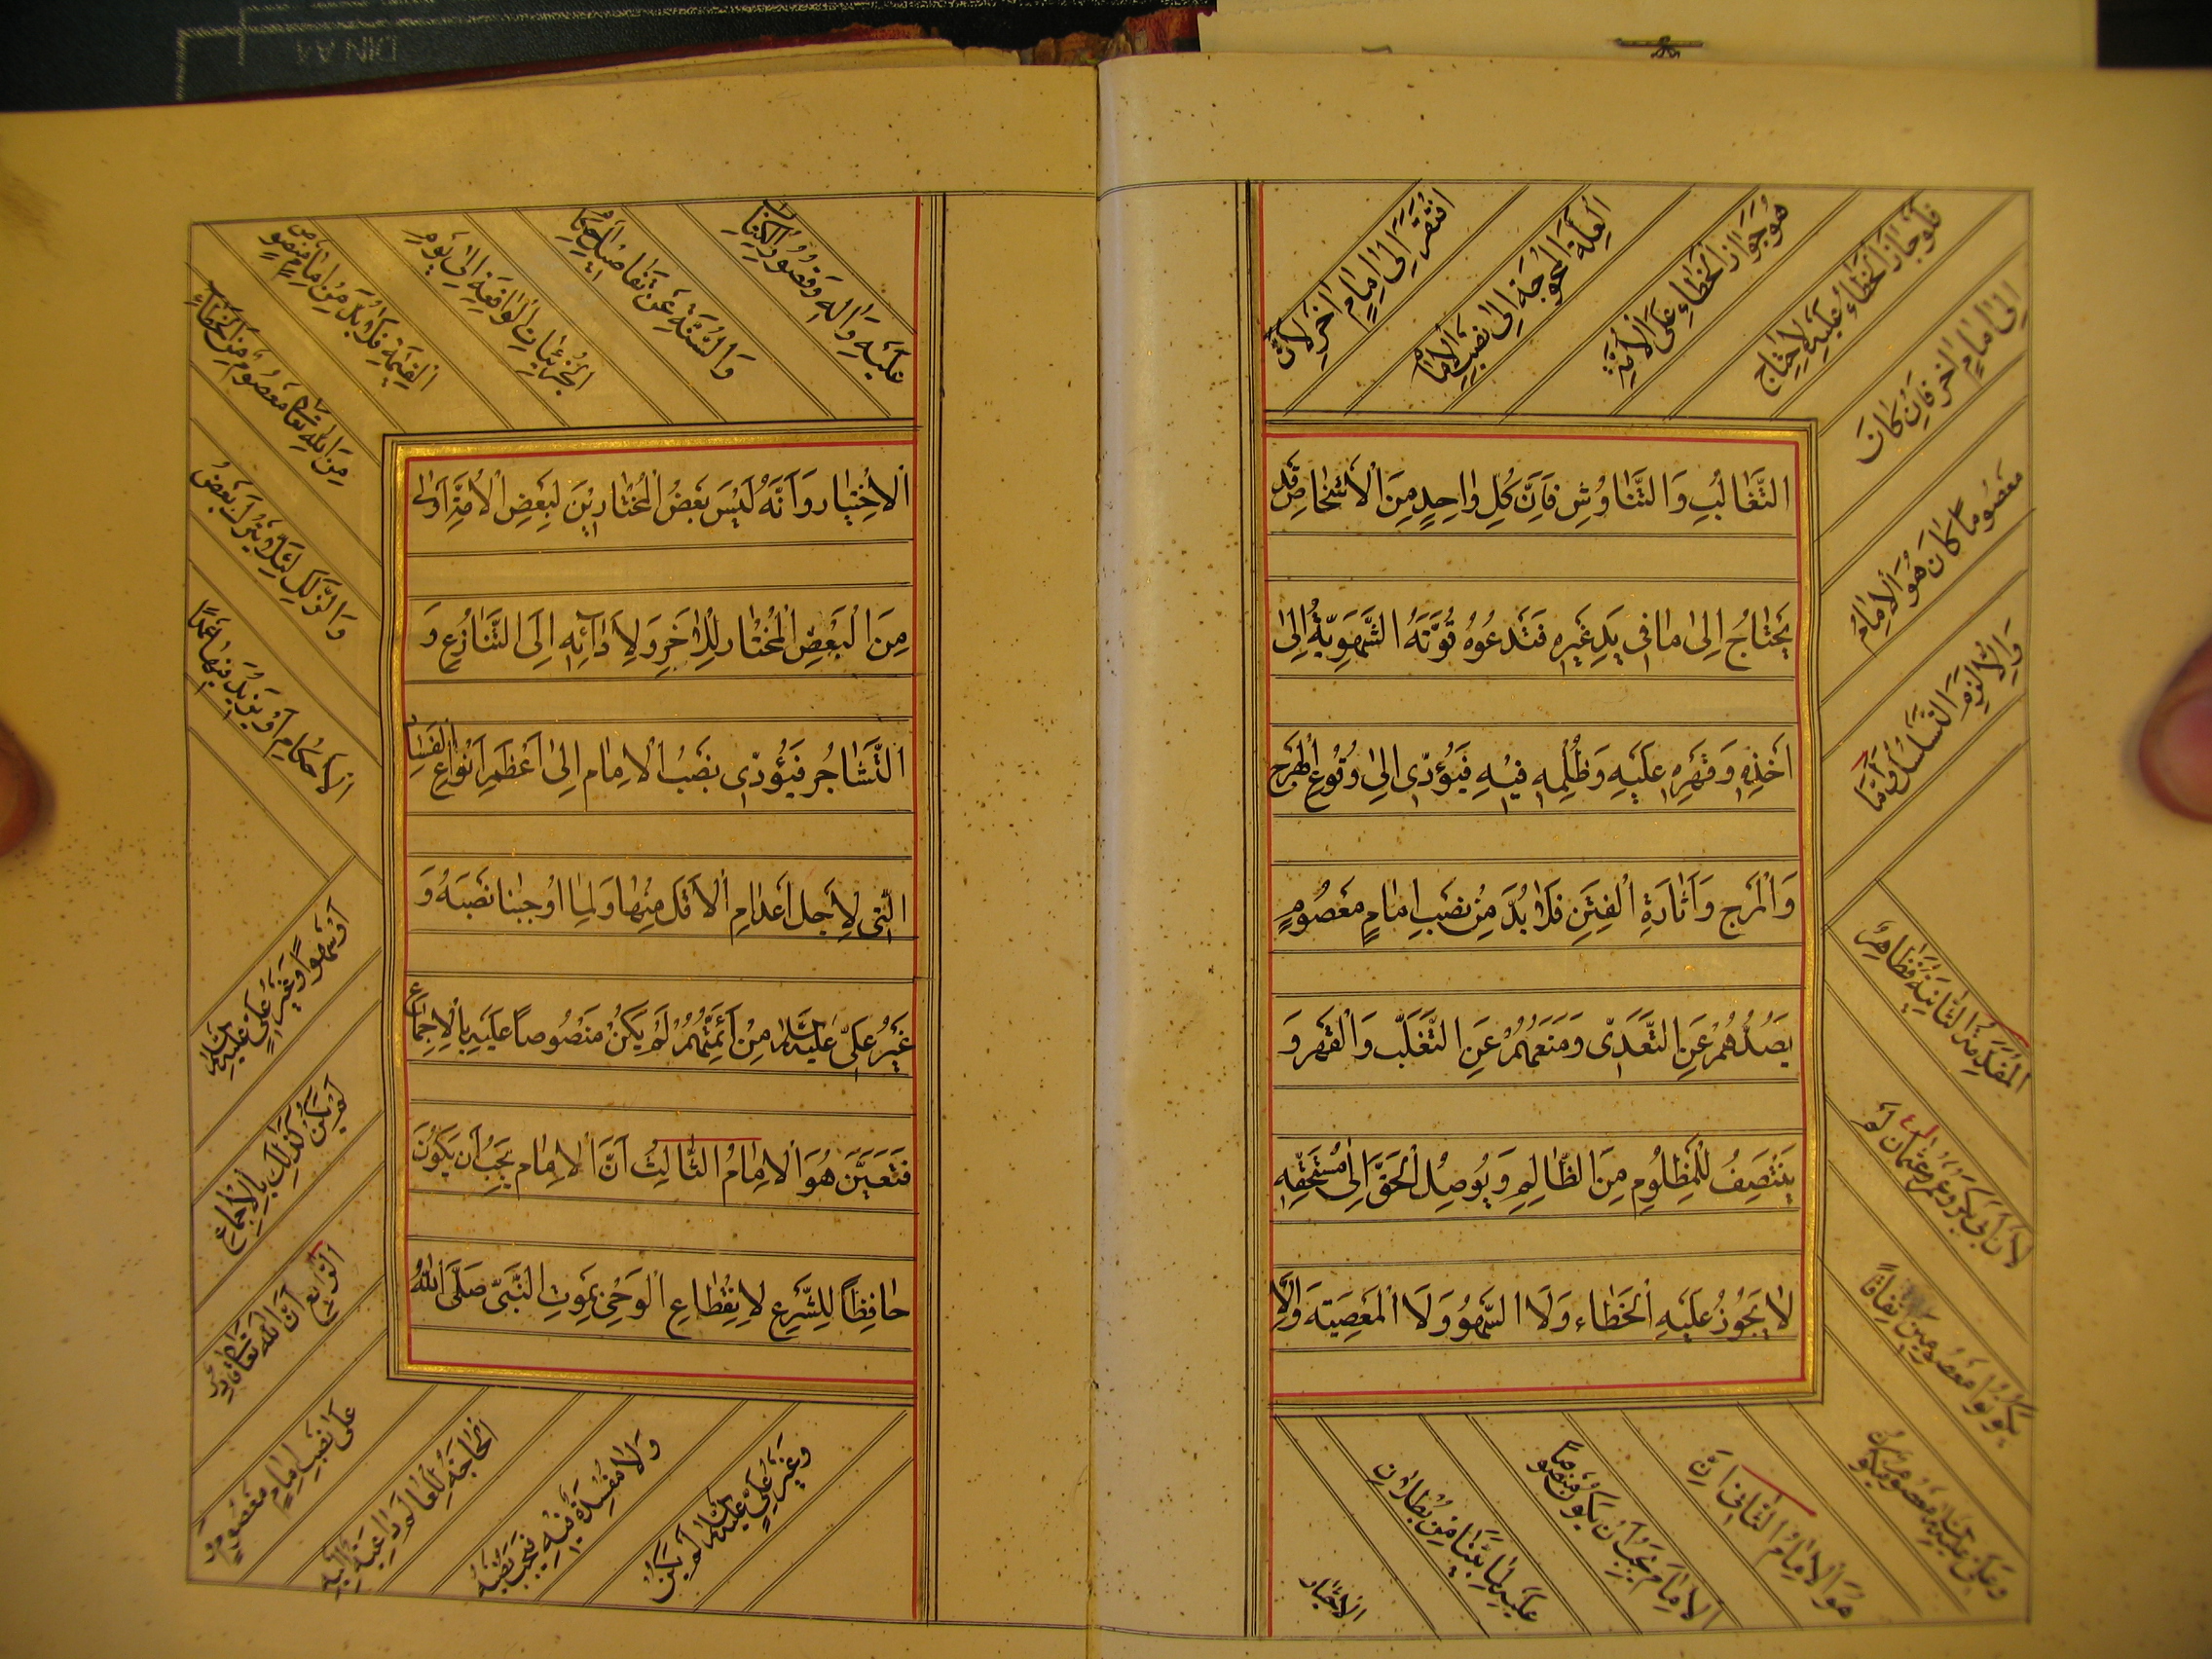 التَّغَالُبِ وَالتَّنَاوُشِ فَاِنَّ كُلَّ وَاحِدٍ مِنَ الْاَشْخَاصِ قَد
يَحْتَاجُ اِلىٰ مَا فِي يَدِ غَيْرِهِ فَتَدْعُوهُ قُوَّتَهُ الشَّهَوِيَّةُ اِلىٰ
اَخْذِهِ وَقَهْرِهِ عَلَيْهِ وَظُلْمِهِ فِيْهِ فَيُؤَدّى اِلىٰ وُقُوعِ الْهَرج
وَالْمَرج وَاَثَارَةِ الْفِتَنِ فَلَا بُدَّ مِنْ نَصْبِ اِمَامٍ مَعْصُومٍ
يَصُدُّهُمْ عَنِ التَّعَدّى وَمَنَعَهُمْ عَنِ التَّغَلُّب وَالْقَهْر وَ
يَنْتَصِفُ لِلْمَظْلُومِ مِنَ الظَّالِمِ وَيُوصِلُ الْحَقَّ اِلىٰ مُسْتَحَقِّهِ
لَا يَجُوزُ عَلَيْهِ الْخَطَاء وَلَا السَّهْوُ وَلَا الْمَعْصِيَة وَاِلَّا
افْتَقَرَ اِلىٰ اِمَامٍ اٰخَرَ لِاَنَّ
الْعِلَّةَ الْمُحْوِجَةَ اِلىٰ نَصْبِ الْاِمَامِ
هُوَ جَوَازُ الْخَطَاءِ عَلَى الْاُمَّةِ
فَلَوْ جَازَ الْخَطَاءُ عَلَيْهِ لَاحْتَاج
اِلىٰ اِمَامٍ اٰخَر فَاِنْ كَانَ
مَعْصُوماً كَانَ هُوَ الْاِمَامُ
وَاِلَّا لَزِمَ التَّسَلْسُلُ وَاَمَّا
الْمُقَدِّمَةُ الثَّانِيَةُ فَظَاهِرٌ
لِاَنَّ اَبِى بَكْرٍ وَعُمَر وَعُثْمَان لَمْ
يَكُونُوا مَعْصُومِينَ اِتِّفَاقًا
وَعَلِى عَلَيْهِ السَّلَام مَعْصُومٌ فَيَكُونُ
هُوَ الْاِمَامُ الثَّانِى اَنَّ
الْاِمَام يَجِبُ اَنْ يَكُونَ مَنْصُوصًا
عَلَيْهِ لِمَا بَيَّنَّا مِنْ بُطْلَانِ
الْاِخْتِيَار
الْاِخْتِيَار وَاَنَّهُ لَيْسَ بَعْضُ الْمُخْتَارِيْنَ لِبَعْضِ الْاُمَّةِ اَوْلى
مِنَ الْبَعْضِ الْمُخْتَار لِلْاٰخَرِ وَلِاَدَائِهِ اِلَى التَّنَازُعِ وَ
التَّشَاجُر فَيُؤَدّى نَصْبُ الْاِمَام اِلىٰ اَعْظَمِ اَنْوَاعِ الْفَسَاد
الَّتِى لِاَجل اَعْدَامِ الْاَقَل مِنْهَا وَلِمَا اَوْجَبْنَا نَصْبَهُ وَ
غَيْرُ عَلِىّ عَلَيْهِ السَّلَام مِنْ اَئِمَّتِهِمْ لَمْ يَكُنْ مَنْصُوصاً عَلَيْهِ بِالْاِجْمَاع
فَتَعَيَّنَ هُوَ الْاِمَامُ الثَّالِثُ اَنَّ الْاِمَام يَجِبُ اَن يَكُوْنَ
حَافِظاً لِلشَّرْع لِاِنْقِطَاعِ الْوَحْى بِمَوتِ النَّبِىّ صَلَّى اللهُ
عَلَيْهِ وَاٰلِهِ وَقُصُورِ الْكِتَابِ
وَالسُّنَّةِ عَنْ تَفَاصِيْلِ اَحْكَامِ
الْجُزْئِيَاتِ الْوَاقِعَةِ اِلىٰ يَوْمِ
الْقِيٰمَةِ فَلَا بُدَّ مِنْ اِمَامٍ مَنْصُوص
مِنَ اللهِ تَعَالىٰ مَعْصُوم مِنَ الْخَطَاءِ
وَالزَّلَل لِئَلَّا يَتْرُكَ بَعْضُ
الْاَحْكَامِ اَوْ يَزِيْدَ فِيْهَا عَمْدًا
اَوْ سَهْوًا وَغَيْرُ عَلِىّ عَلَيْهِ السَّلَام
لَمْ يَكُنْ كَذٰلِكَ بِالْاِجْمَاع
الرَّابِع اَنَّ اللهَ تَعَالىٰ قَادِرٌ
عَلىٰ نَصْبِ اِمَامٍ مَعْصُومٍ وَ
الْحَاجَةُ لِلْعَالَم دَاعِيَةٌ اِلَيْهِ
وَلَا مَفْسَدَةَ فِيْهِ فَيَجِبُ نَصْبُهُ
وَغَيْرُ عَلِىّ عَلَيْهِ السَّلَام لَمْ يَكُنْ